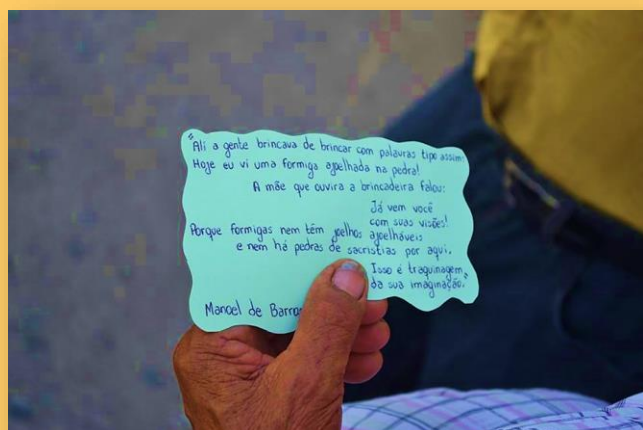 "Ali a gente brincava de brincar com palavras tipo assim:
Hoje eu vi uma formiga ajoelhada na pedra!
A mãe que ouvira a brincadeira falou:
Já vem você
com suas visões!
Porque formigas nem têm joelhos ajoelháveis
e nem há pedras de sacristias por aqui.
Isso é traquinagem
da sua imaginação."
Manoel de Barros